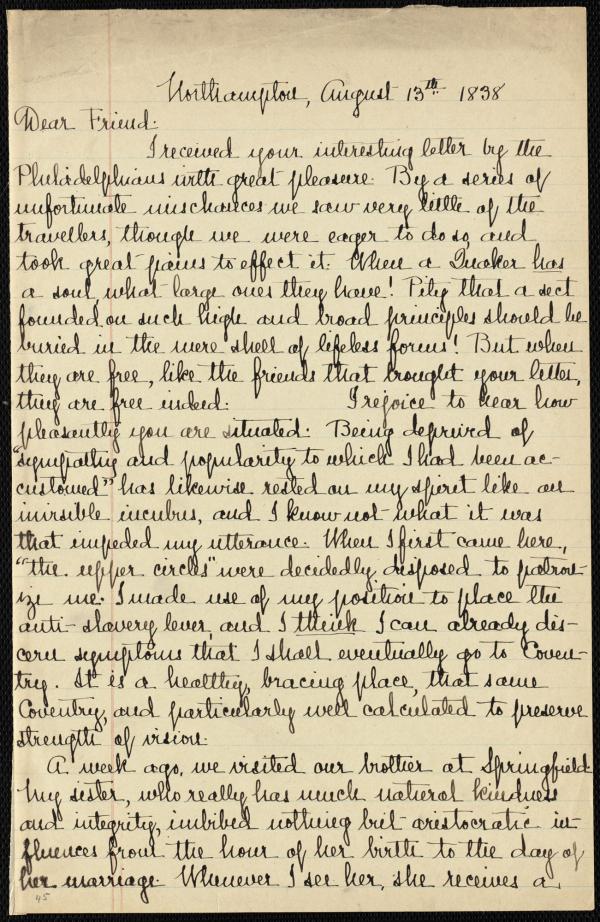 Northampton, August 13th 1838
Dear Friend:
I received your interesting letter by the
Philadelphians with great pleasure. By a series of
unfortunate mischances we saw very little of the
travellers, though we were eager to do so, and
took great pains to effect it. When a Quaker has
a soul, what large ones they have! Pity that a sect
founded on such high and broad principles should be
buried in the mere shell of lifeless forms! But when
they are free, like the friends that brought your letter,
they are free indeed. I rejoice to hear how
pleasantly you are situated. Being deprived of
"sympathy and popularity to which I had been ac-
customed" has likewise rested on my spirit like an
invisible incubus, and I know not what it was
that impeded my utterance. When I first came here,
"the upper circles" were decidedly disposed to patron-
ize me. I made use of my position to place the
anti-slavery lever, and I think I can already dis-
cern symptoms that I shall eventually go to Coven-
try. It is a healthy, bracing place, that same
Coventry, and particularly well calculated to preserve
strength of vision.
A week ago, we visited our brother at Springfield.
My sister, who really has much natural kindness
and integrity, imbibed nothing but aristocratic in-
fluences from the hour of her birth to the day of
her marriage. Whenever I see her, she receives a
45